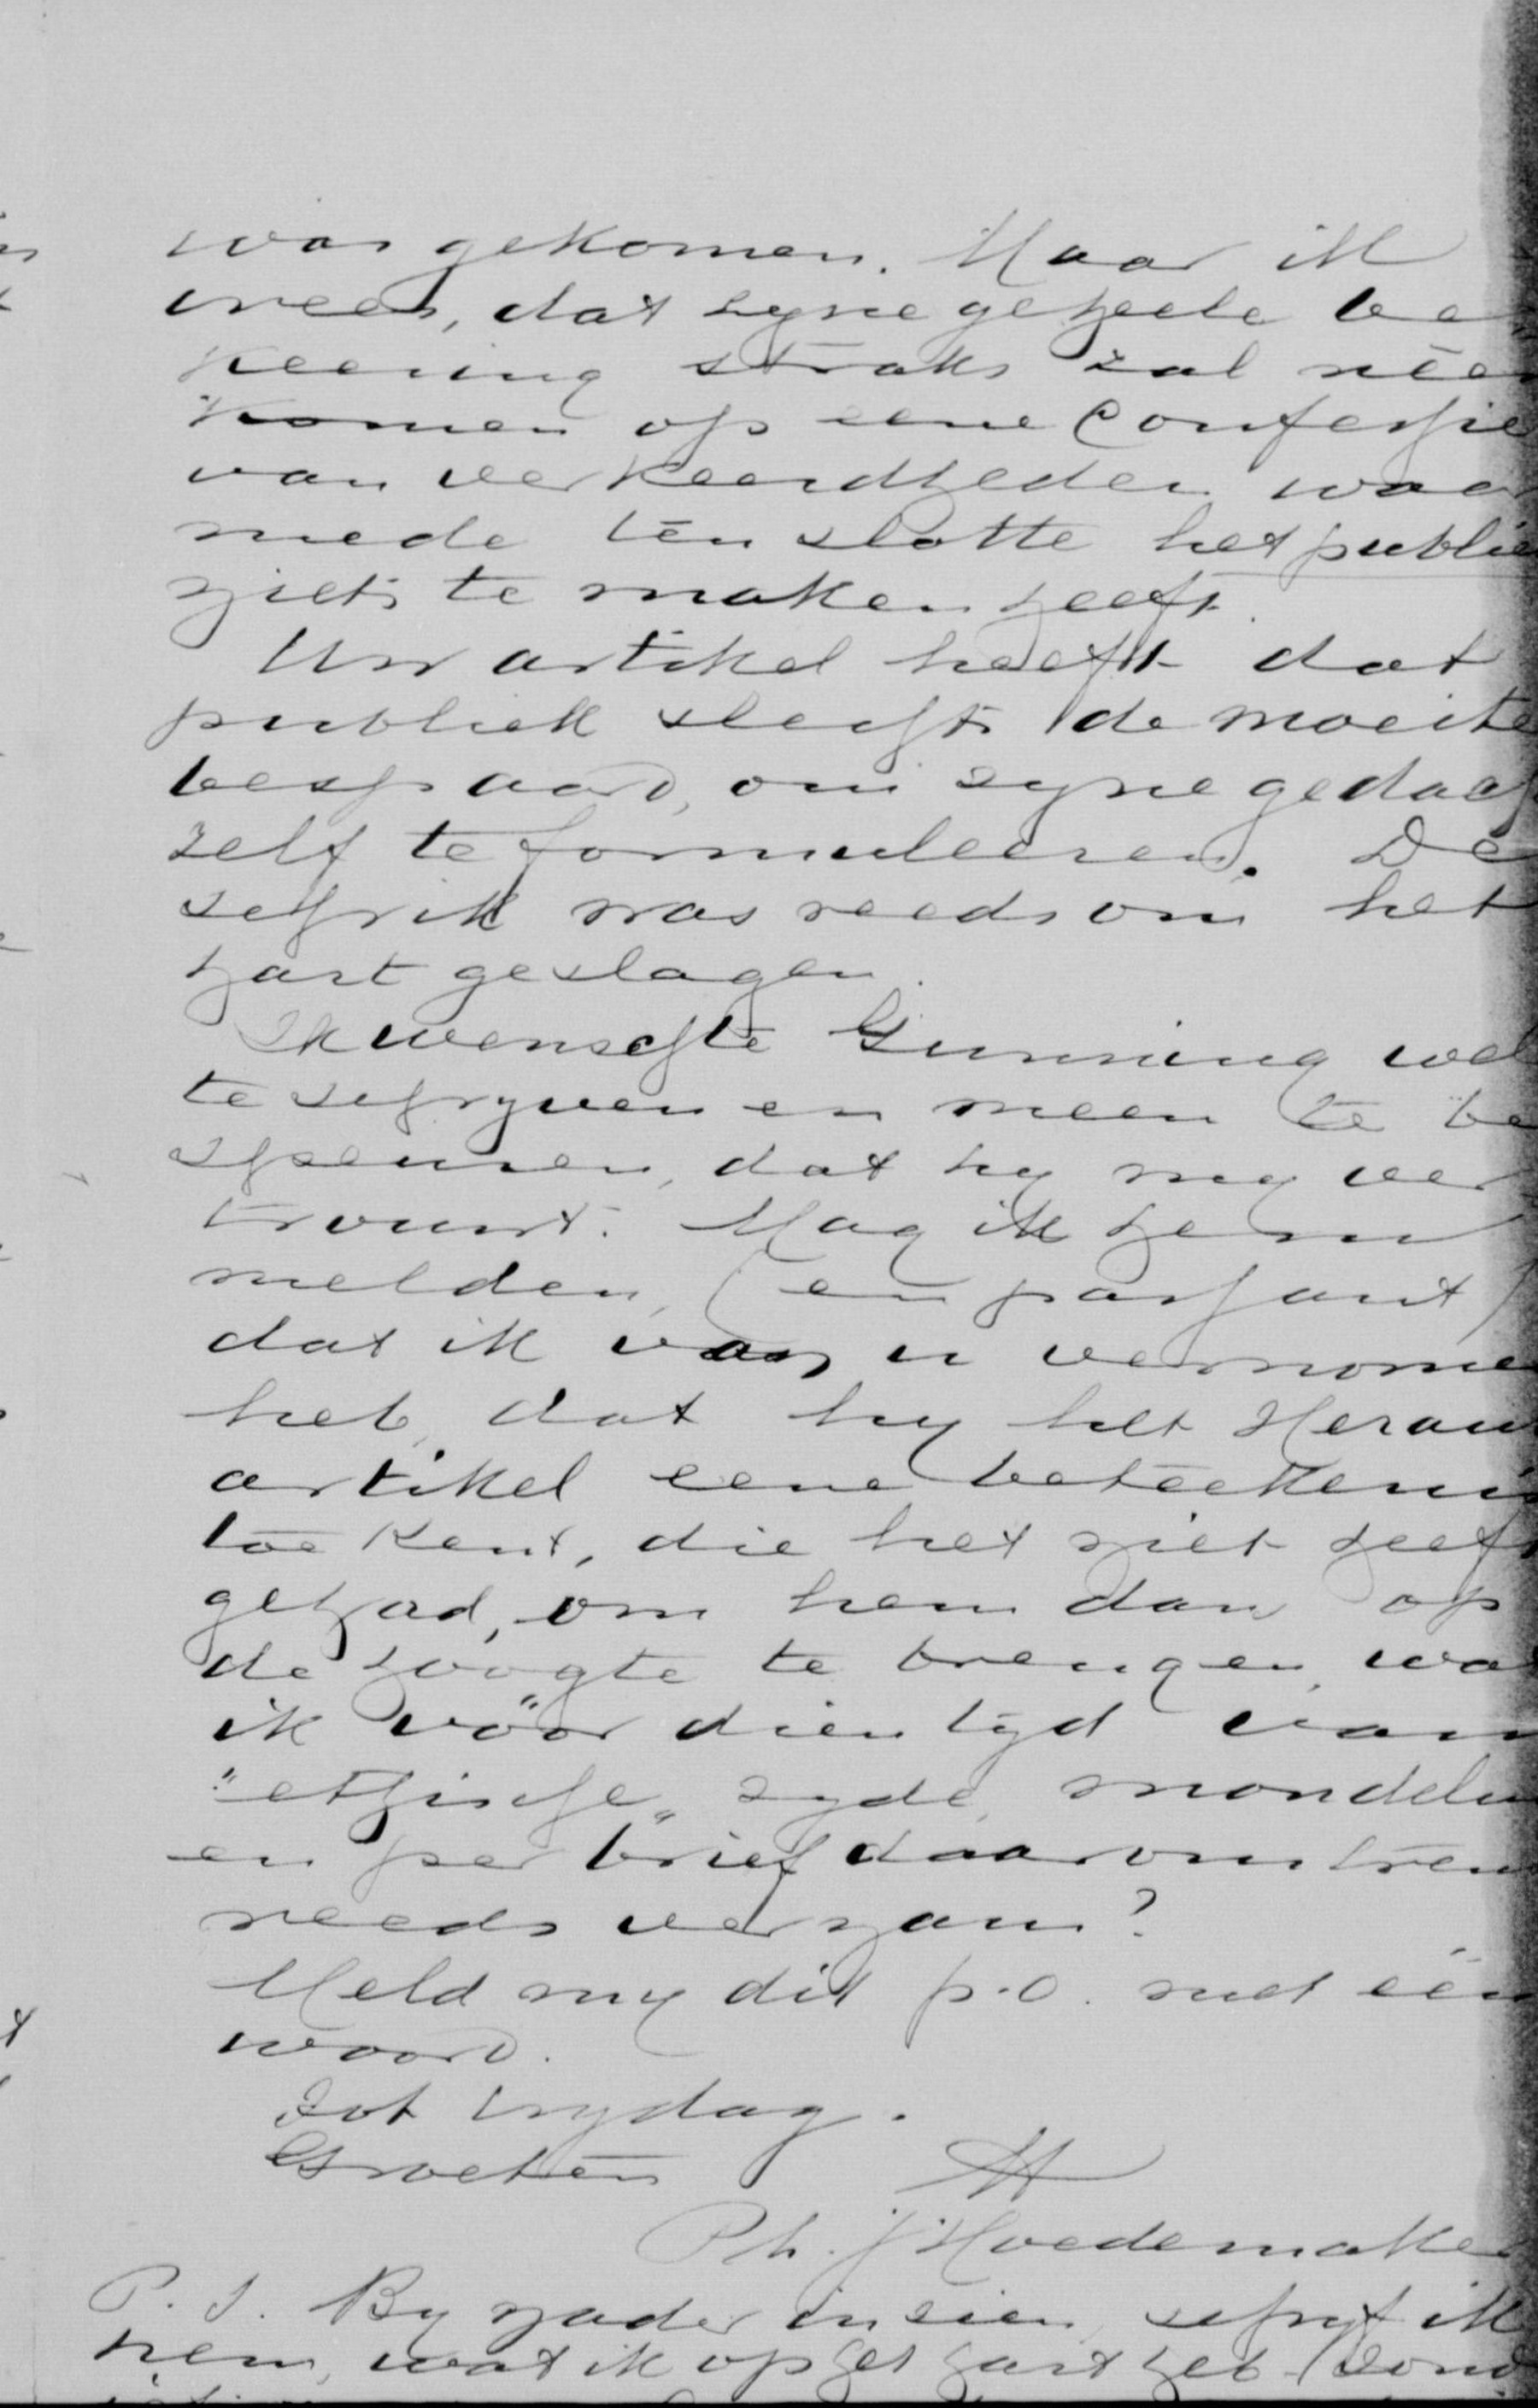 was gekomen. Maar ik
vrees, dat zyne geheele be
keering straks zal néér
komen op eene Confessie
van verkeerdheden waar
mede ten slotte het publie
niets te maken heeft.
Uw artikel heeft dat
publiek slechts de moeite
bespaard, om zyne gedach
zelf te formuleeren. De
schrik was reeds om het
hart geslagen.
Ik wenschte Gunning wel
te schryven en meen te be
speuren, dat hy my ver
trouwt. Mag ik hem
melden, (en passant)
dat ik van u vernome
heb, dat hy het Herau
artikel eene beteekenis
toe kent, die het niet heeft
gehad, om hem dan op
de hoogte te brengen, wa
ik vóór dien tyd van
"ethische" zyde, mondelin
en per brief daaromtren
reeds vernam?
Meld my dit p.o. met één
woord.
Tot vrydag.
Groeten
tt
Ph. J Hoedemake
P.S. By nader inzien, schryf ik
hem, wat ik op het hart heb (zond